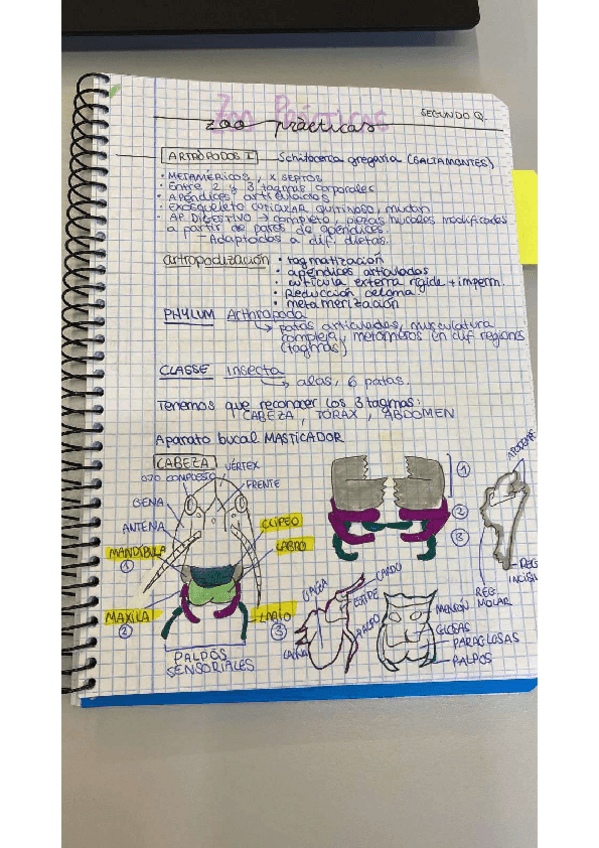 Zoo PRÁCTICAS
zoo prácticas
SEGUNDO Q.
ARTRÓPODOS I - Schistocerca gregaria (SALTAMONTES)
· METAMÉRICOS, X SEPTOS
· Entre 2 y 3 tagmas corporales
· Apéndices articulados
· EXOESQUELETO CUTICULAR QUITINOSO, mudan
· AP. DIGESTIVO → completo, piezas bucales modificadas
a partir de pares de apéndices.
- Adaptados a dif. dietas.
artropodización · tagmatización
· apéndices articulados
· cutícula externa rígida + imperm.
· Reducción celoma
· metamerización
PHYLUM Arthropoda
↳ patas articuladas, musculatura
compleja, metámeros en dif regiones
(tagmas)
CLASSE Insecta
↳ alas, 6 patas.
Tenemos que reconocer los 3 tagmas:
CABEZA, TÓRAX, ABDOMEN
Aparato bucal MASTICADOR
CABEZA
OJO COMPUESTO
VÉRTEX
FRENTE
GENA
ANTENA
CLÍPEO
LABRO
MANDÍBULA
1
MAXILA
2
LABIO
3
PALPOS
SENSORIALES
1
2
3
REG
MOLAR
CARDO
ESTIPE
MENTÓN
GLOSAS
PARAGLOSAS
PALPOS